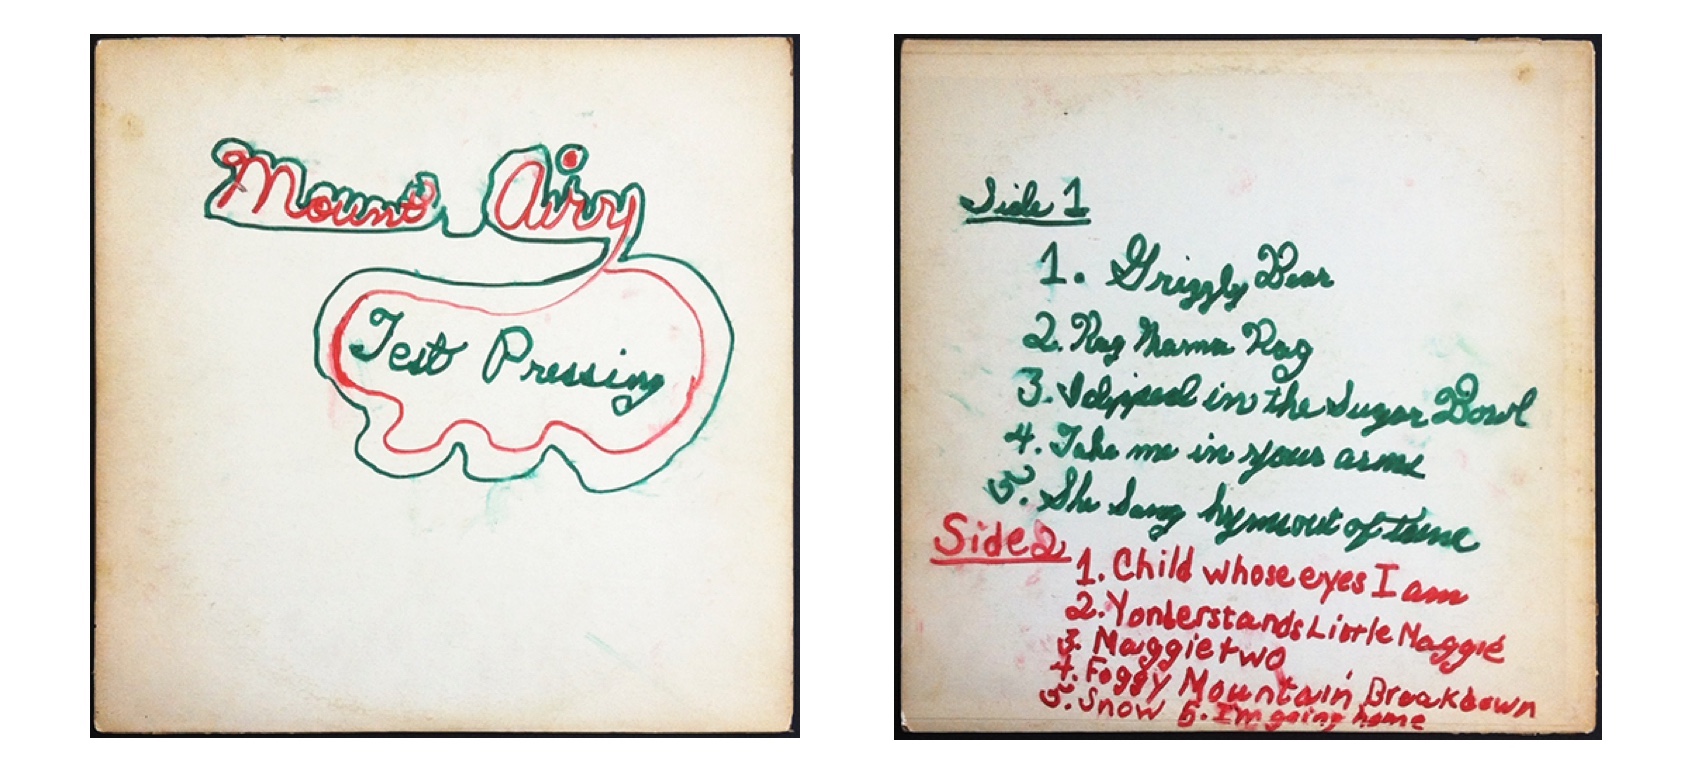 Mount Airy
Test Pressing
Side 1
1. Grizzly Bear
2. Rag Mama Rag
3. I dipped in the Sugar Bowl
4. Take me in your arms
5. She Sang hymns out of tune
Side 2
1. Child whose eyes I am
2. Yonder stands Little Maggie
3. Maggie two
4. Foggy Mountain Breakdown
5. Snow 6. I'm going home